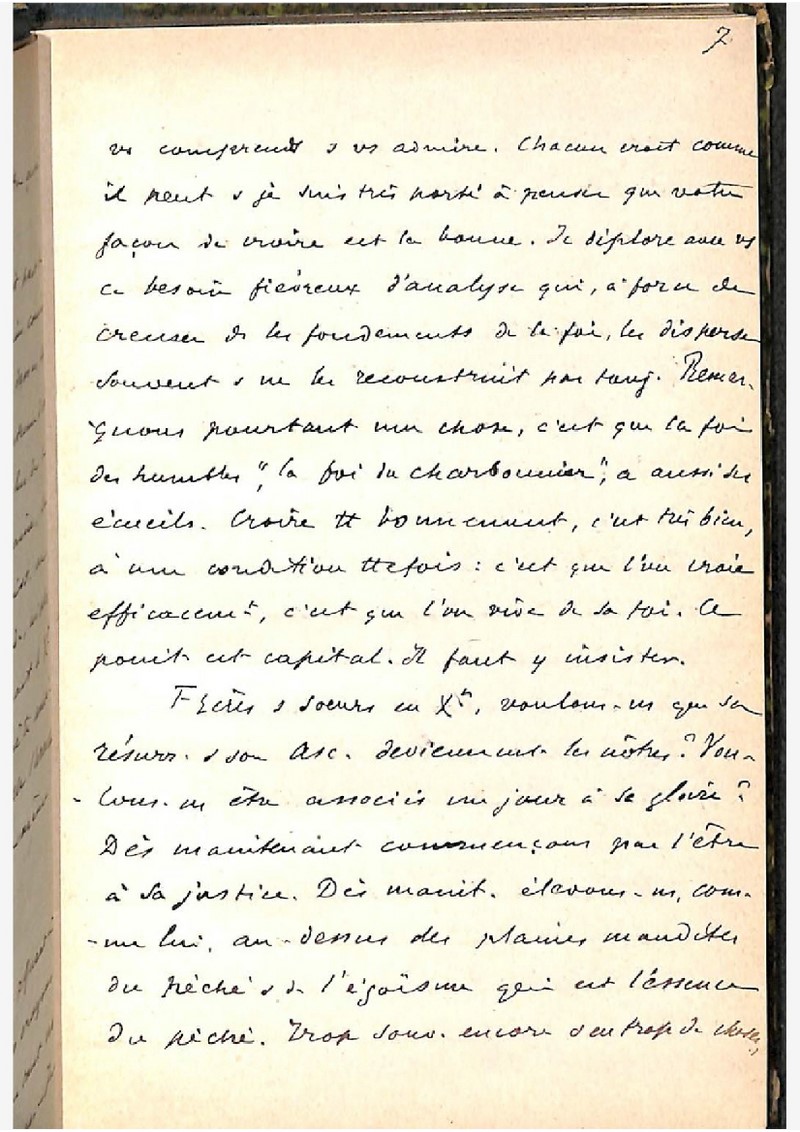 7
vs comprends & vs admire. Chacun croit comme
il peut & je suis très porté à penser que votre
façon de croire est la bonne. Je déplore avec vs
ce besoin fiévreux d'analyse qui, à force de
creuser ds les fondements de la foi, les disperse
souvent & ne les reconstruit pas touj. Remar-
quons pourtant une chose, c'est que la foi
des humbles, "la foi du charbonnier", a aussi ses
écueils. Croire tt bonnement, c'est très bien,
à une condition ttefois : c'est que l'on croie
efficacemt, c'est que l'on vive de sa foi. Ce
point est capital. Il faut y insister.
Frères & soeurs en Xt, voulons-ns que sa
résurr. & son Asc. deviennent les nôtres? Vou-
-lons-ns être associés un jour à sa gloire?
Dès maintenant commençons par l'être
à sa justice. Dès maint. élevons-ns, com-
-me lui, au-dessus des plaines maudites
du péché & de l'égoïsme qui est l'essence
du péché. Trop souv. encore & en trop de choses,